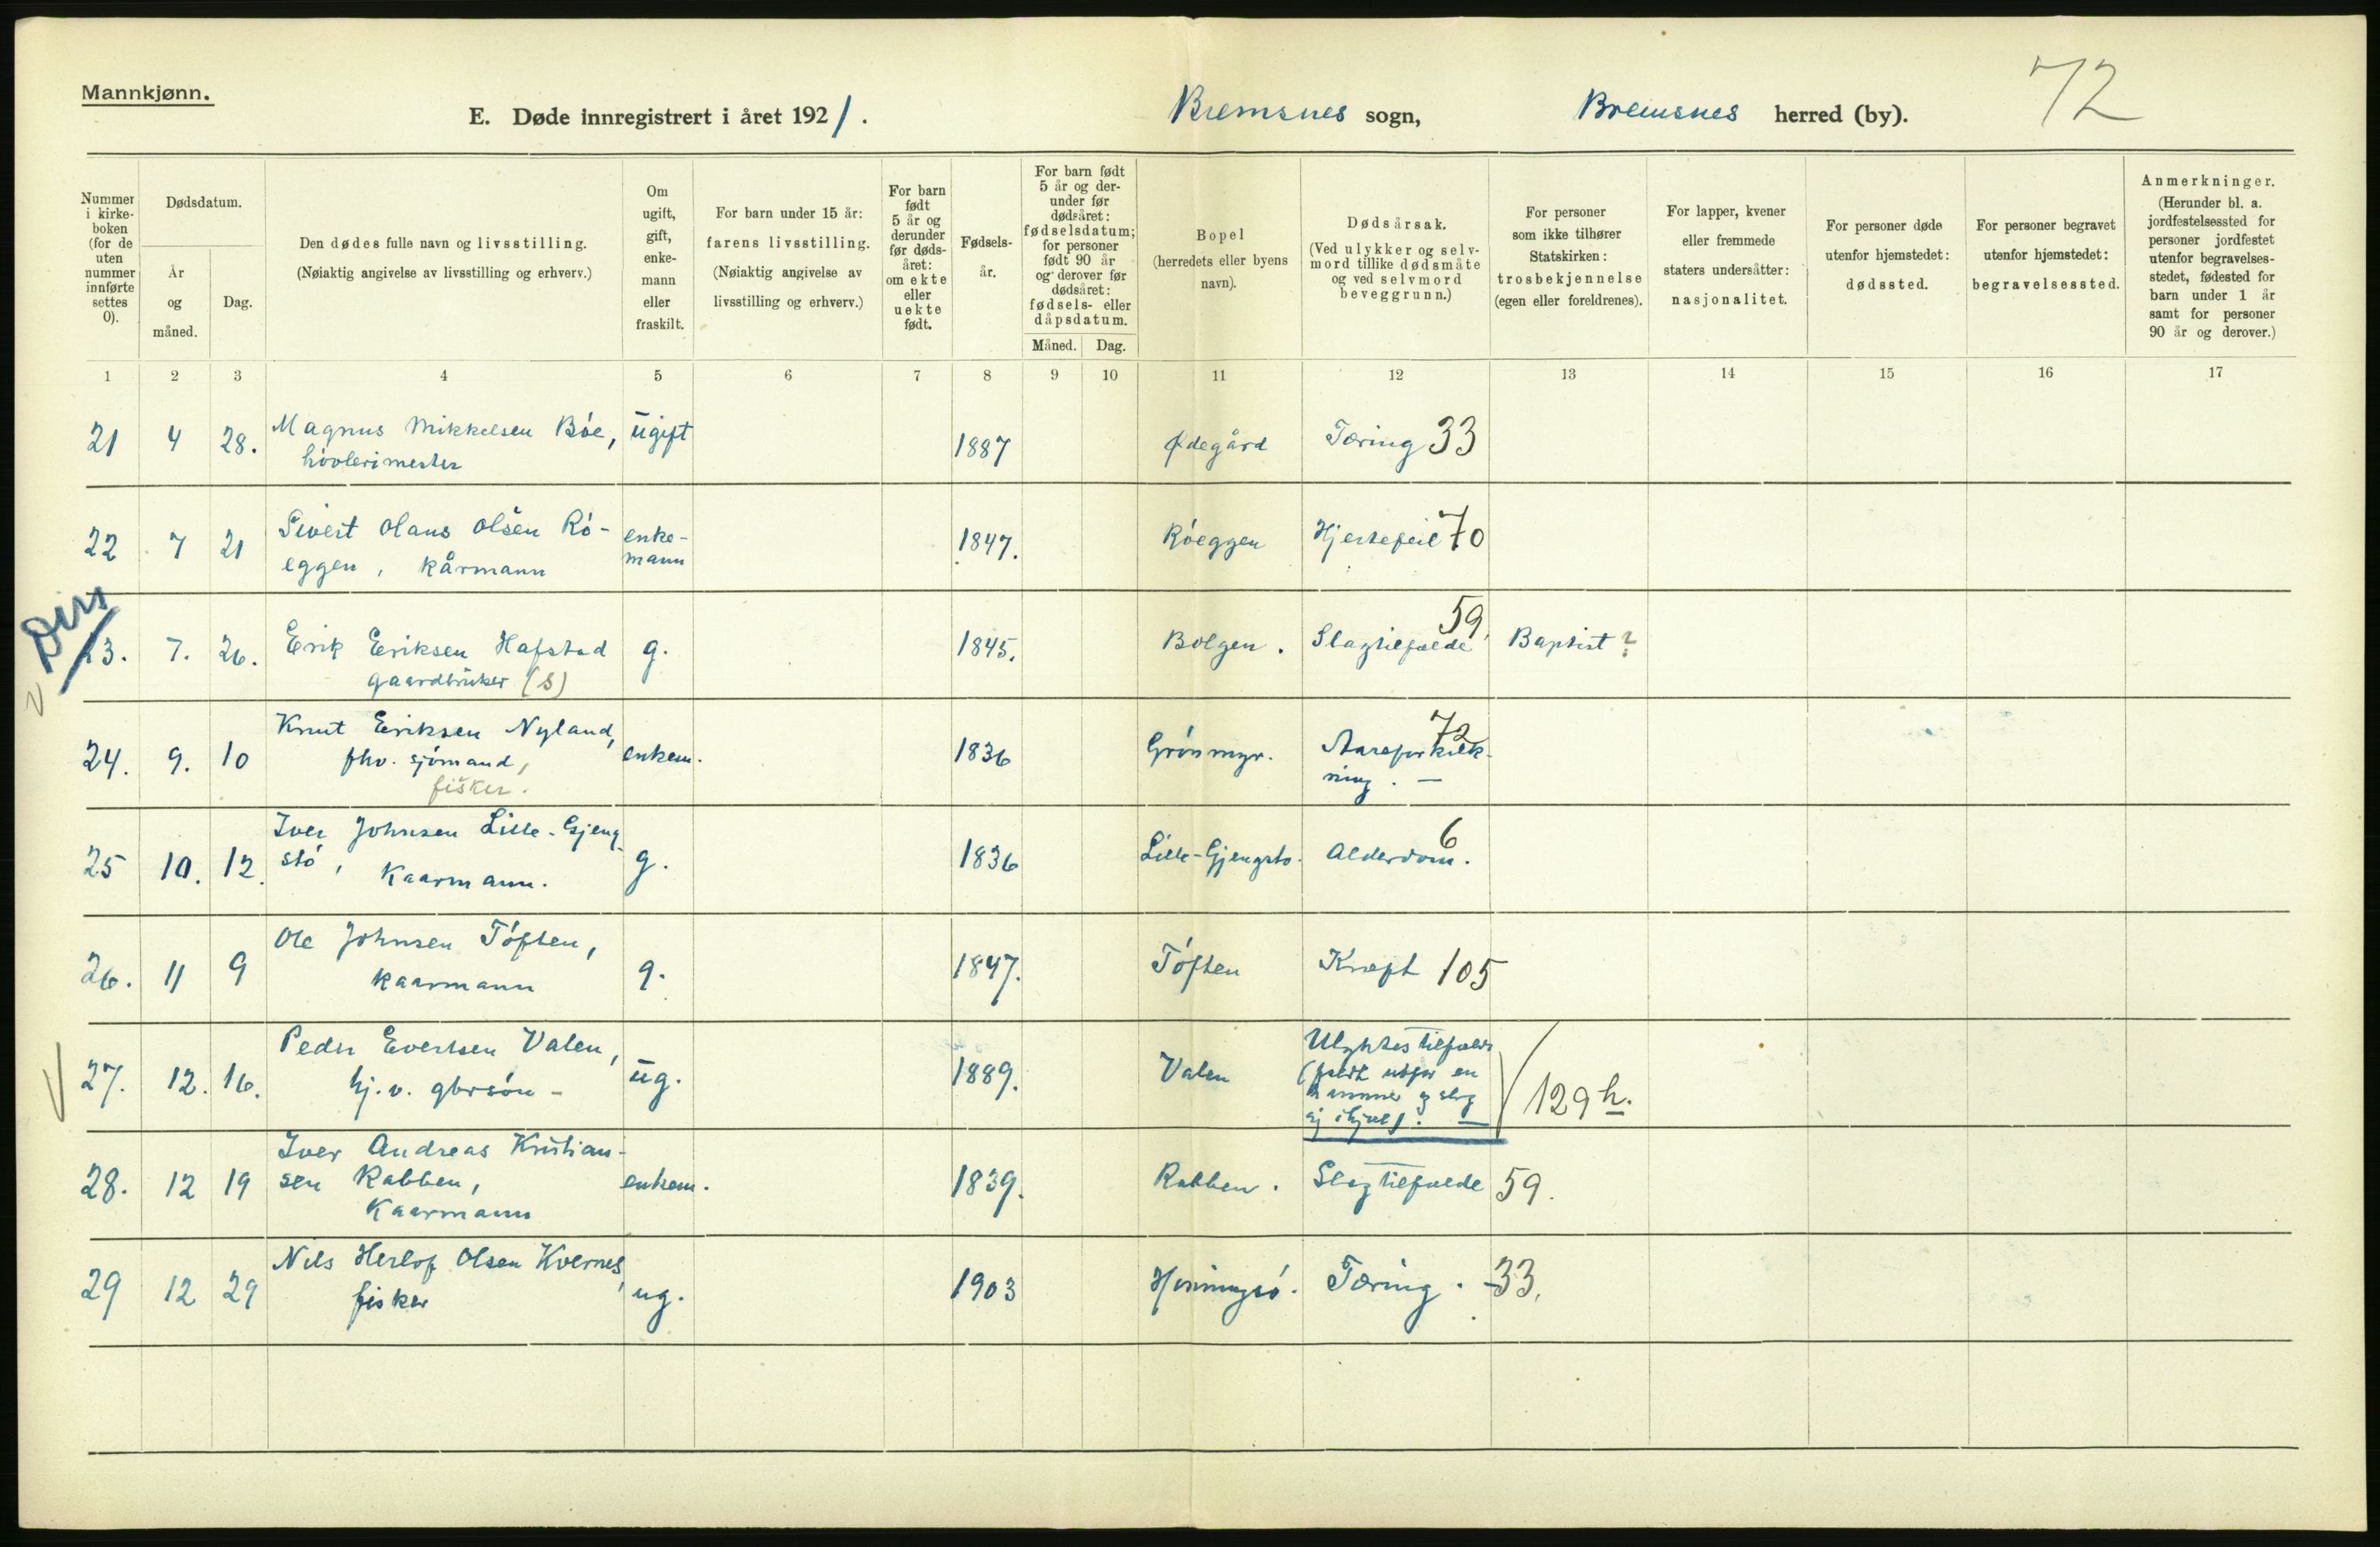 Mannkjønn.
E. Døde innregistrert i året 1921.
Bremsnes sogn,
Bremsnes herred (by).
72
Nummer i kirkeboken (for de uten nummer innførte settes 0).
Dødsdatum.
År og måned.
Dag.
Den dødes fulle navn og livsstilling.
(Nøiaktig angivelse av livsstilling og erhverv.)
Om ugift, gift, enkemann eller fraskilt.
For barn under 15 år: farens livsstilling.
(Nøiaktig angivelse av livsstilling og erhverv.)
For barn født 5 år og derunder før dødsåret: om ekte eller uekte født.
Fødselsår.
For barn født 5 år og derunder før dødsåret: fødselsdatum; for personer født 90 år og derover før dødsåret: fødsels- eller dåpsdatum.
Måned. Dag.
Bopel
(herredets eller byens navn).
Dødsårsak.
(Ved ulykker og selvmord tillike dødsmåte og ved selvmord beveggrunn.)
For personer som ikke tilhører Statskirken: trosbekjennelse (egen eller foreldrenes).
For lapper, kvener eller fremmede staters undersåtter: nasjonalitet.
For personer døde utenfor hjemstedet: dødssted.
For personer begravet utenfor hjemstedet: begravelsessted.
Anmerkninger.
(Herunder bl. a. jordfestelsessted for personer jordfestet utenfor begravelsesstedet, fødested for barn under 1 år samt for personer 90 år og derover.)
1 2 3 4 5 6 7 8 9 10 11 12 13 14 15 16 17
21 4 28. Magnus Mikkelsen Bøe, ugift 1887 Ødegård Tæring 33
høvlerimester
22 7 21 Sivert Olaus Olsen Rø- enke- 1847. Røeggen Hjertefeil 70
eggen, kårmann mann
23. 7. 26. Erik Eriksen Hafstad g. 1845. Bolgen. Slagtilfælde 59, Baptist ?
gaardbruker (S)
24. 9. 10 Knut Eriksen Nyland, enkem. 1836 Grønmyr. Aareforkalk- 72
fhv. sjømand, ning. —
fisker.
25 10. 12. Iver Johnsen Lille-Gjeng- g. 1836 Lille-Gjengstø. Alderdom. 6
stø, Kaarmann.
26. 11 9 Ole Johnsen Tøften, g. 1847. Tøften Kræft 105
kaarmann
27. 12. 16. Peder Evertsen Valen, ug. 1889. Valen Ulykkestilfælde
hj. v. gbrsøn - (faldt utfor en
hammer og slog
sig ihjel). — 129 h.
28. 12 19 Iver Andreas Kristian- enkem. 1839. Rabben. Slagtilfælde 59.
sen Rabben,
Kaarmann
29 12 29 Nils Herlof Olsen Kvernes, ug. 1903 Henningsø. Tæring. - 33.
fisker